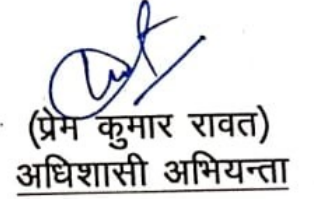 (प्रेम कुमार रावत)
अधिशासी अभियन्ता